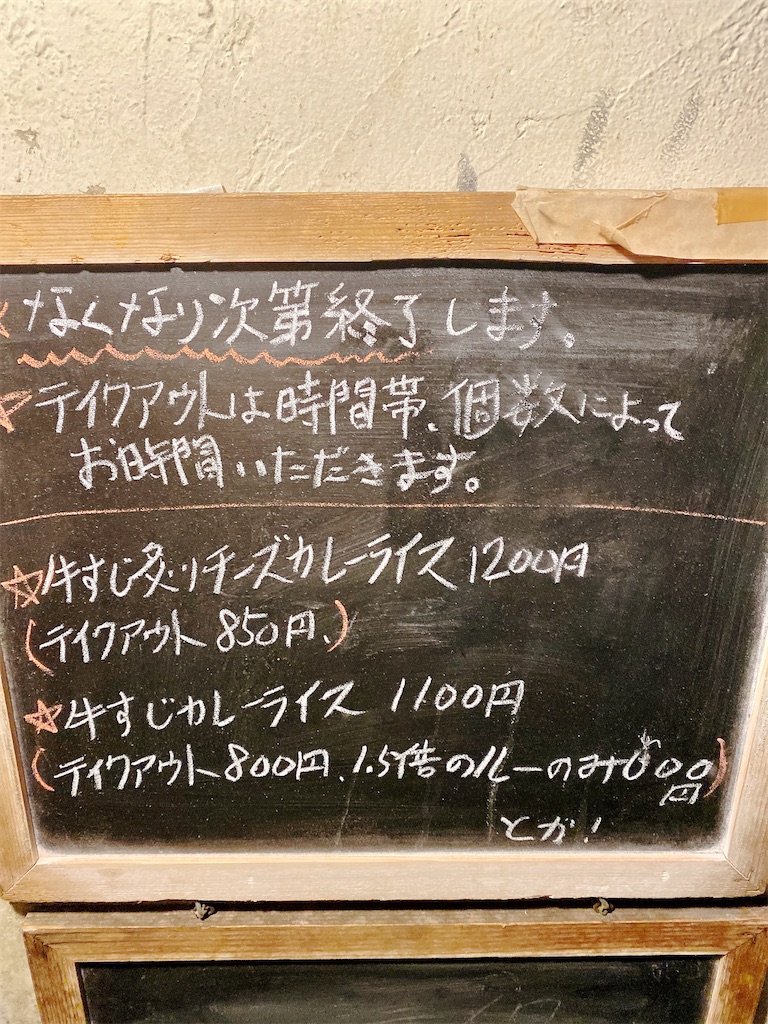 ☆なくなり次第終了します。
☆テイクアウトは時間帯、個数によって
お時間いただきます。
☆牛すじ炙りチーズカレーライス 1200円
(テイクアウト 850円、)
☆牛すじカレーライス 1100円
(テイクアウト 800円、1.5倍のルーのみ
円)
とか!